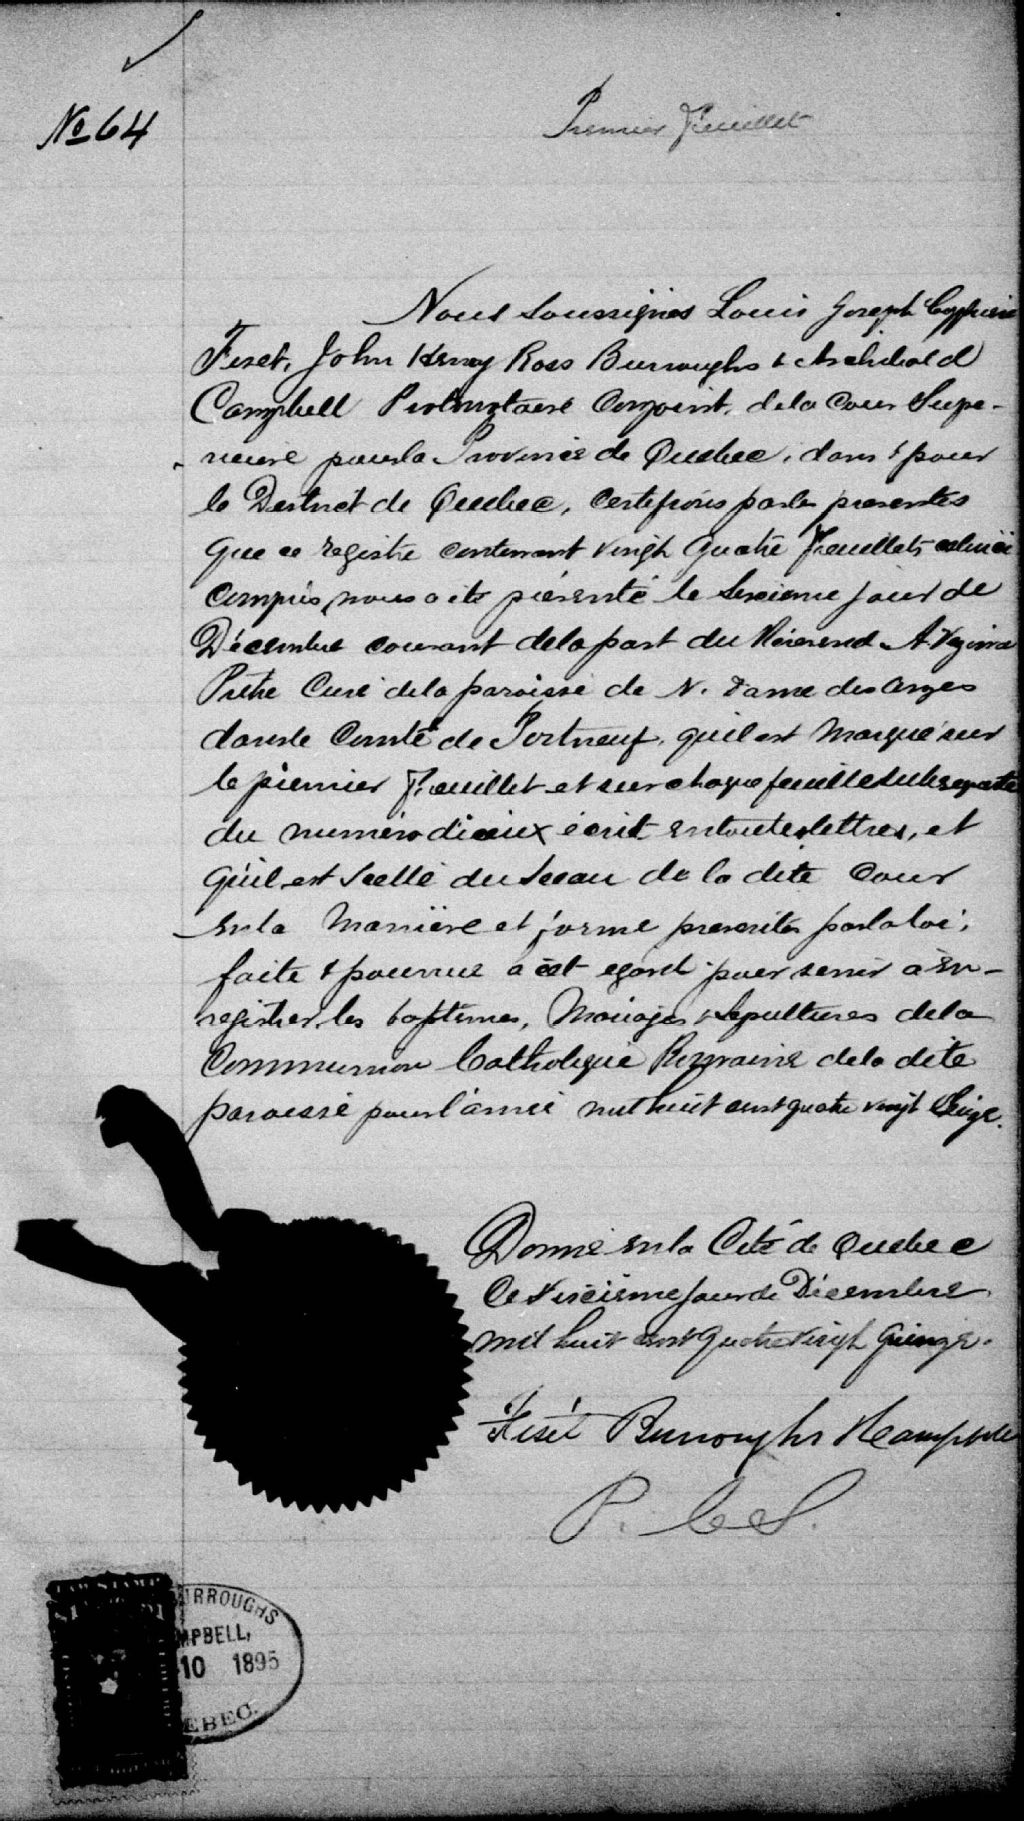 No 64
Premier Feuillet
Nous soussignés Louis Joseph Cyprien
Fiset, John Henry Ross Burroughs & Archibald
Campbell Protonotaire Conjoint, de la Cour Supé-
rieure pour la Province de Québec, dans & pour
le District de Québec, certifions par les présentes
que ce registre contenant vingt quatre Feuillets celui ci
compris, nous a été présenté le jour de
Décembre courant de la part du Révérend A Vezina
Prêtre Curé de la paroisse de N. Dame des Anges
dans le Comté de Portneuf, qu'il est Marqué sur
le premier Feuillet et sur chaque feuillet subséquent
du numéro d'iceux écrit en toutes lettres, et
qu'il est Scellé du Sceau de la dite Cour
en la Manière et forme prescrites par la loi,
faite & pourvue à cet égard pour servir à En-
registrer les baptêmes, Mariages & Sépultures de la
Communion Catholique Romaine de la dite
paroisse pour l'année mil huit cent quatre vingt Seize.
Donné en la Cité de Québec
Ce jour de Décembre
mil huit cent quatre vingt quinze.
Fiset Burroughs & Campbell
P. C. S.
URROUGHS
MPBELL,
10 1895
EBEC.